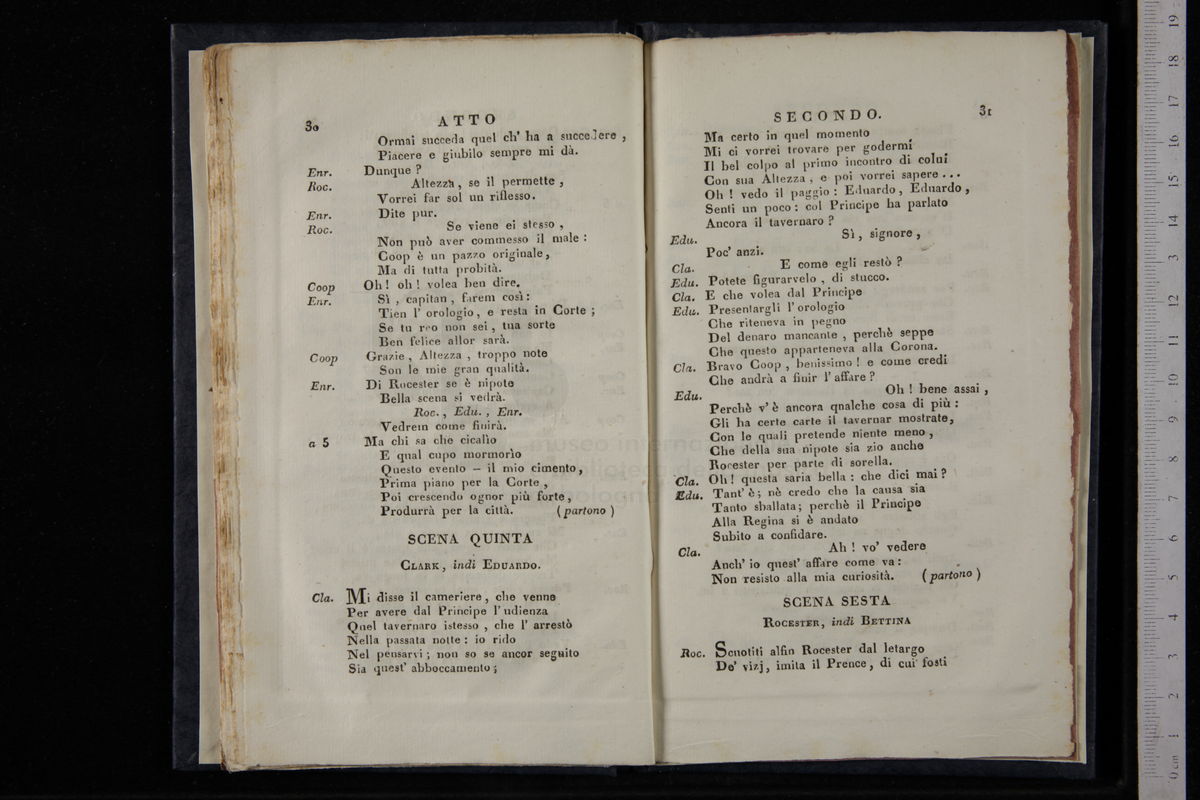 30
ATTO
Ormai succeda quel ch' ha a succedere ,
Piacere e giubilo sempre mi dà.
Enr. Dunque ?
Roc. Altezza , se il permette ,
Vorrei far sol un riflesso.
Enr. Dite pur.
Roc. Se viene ei stesso ,
Non può aver commesso il male :
Coop è un pazzo originale ,
Ma di tutta probità.
Coop Oh ! oh ! volea ben dire.
Enr. Sì , capitan , farem così :
Tien l' orologio , e resta in Corte ;
Se tu reo non sei , tua sorte
Ben felice allor sarà.
Coop Grazie , Altezza , troppo note
Son le mie gran qualità.
Enr. Di Rocester se è nipote
Bella scena si vedrà.
Roc. , Edu. , Enr.
Vedrem come finirà.
a 5 Ma chi sa che cicalìo
E qual cupo mormorìo
Questo evento – il mio cimento ,
Prima piano per la Corte ,
Poi crescendo ognor più forte ,
Produrrà per la città. ( partono )
SCENA QUINTA
CLARK , indi EDUARDO.
Cla. Mi disse il cameriere , che venne
Per avere dal Principe l' udienza
Quel tavernaro istesso , che l' arrestò
Nella passata notte : io rido
Nel pensarvi ; non so se ancor seguito
Sia quest' abboccamento ;
SECONDO.
31
Ma certo in quel momento
Mi ci vorrei trovare per godermi
Il bel colpo al primo incontro di colui
Con sua Altezza , e poi vorrei sapere . . .
Oh ! vedo il paggio : Eduardo , Eduardo ,
Senti un poco : col Principe ha parlato
Ancora il tavernaro ?
Edu. Sì , signore ,
Poc' anzi.
Cla. E come egli restò ?
Edu. Potete figurarvelo , di stucco.
Cla. E che volea dal Principe
Edu. Presentargli l' orologio
Che riteneva in pegno
Del denaro mancante , perchè seppe
Che questo apparteneva alla Corona.
Cla. Bravo Coop , benissimo ! e come credi
Che andrà a finir l' affare ?
Edu. Oh ! bene assai ,
Perchè v' è ancora qualche cosa di più :
Gli ha certe carte il tavernar mostrate,
Con le quali pretende niente meno ,
Che della sua nipote sia zio anche
Rocester per parte di sorella.
Cla. Oh ! questa saria bella : che dici mai ?
Edu. Tant' è ; nè credo che la causa sia
Tanto sballata ; perchè il Principe
Alla Regina si è andato
Subito a confidare.
Cla. Ah ! vo' vedere
Anch' io quest' affare come va :
Non resisto alla mia curiosità. ( partono )
SCENA SESTA
ROCESTER , indi BETTINA
Roc. Scuotiti alfin Rocester dal letargo
De' vizj , imita il Prence , di cui fosti